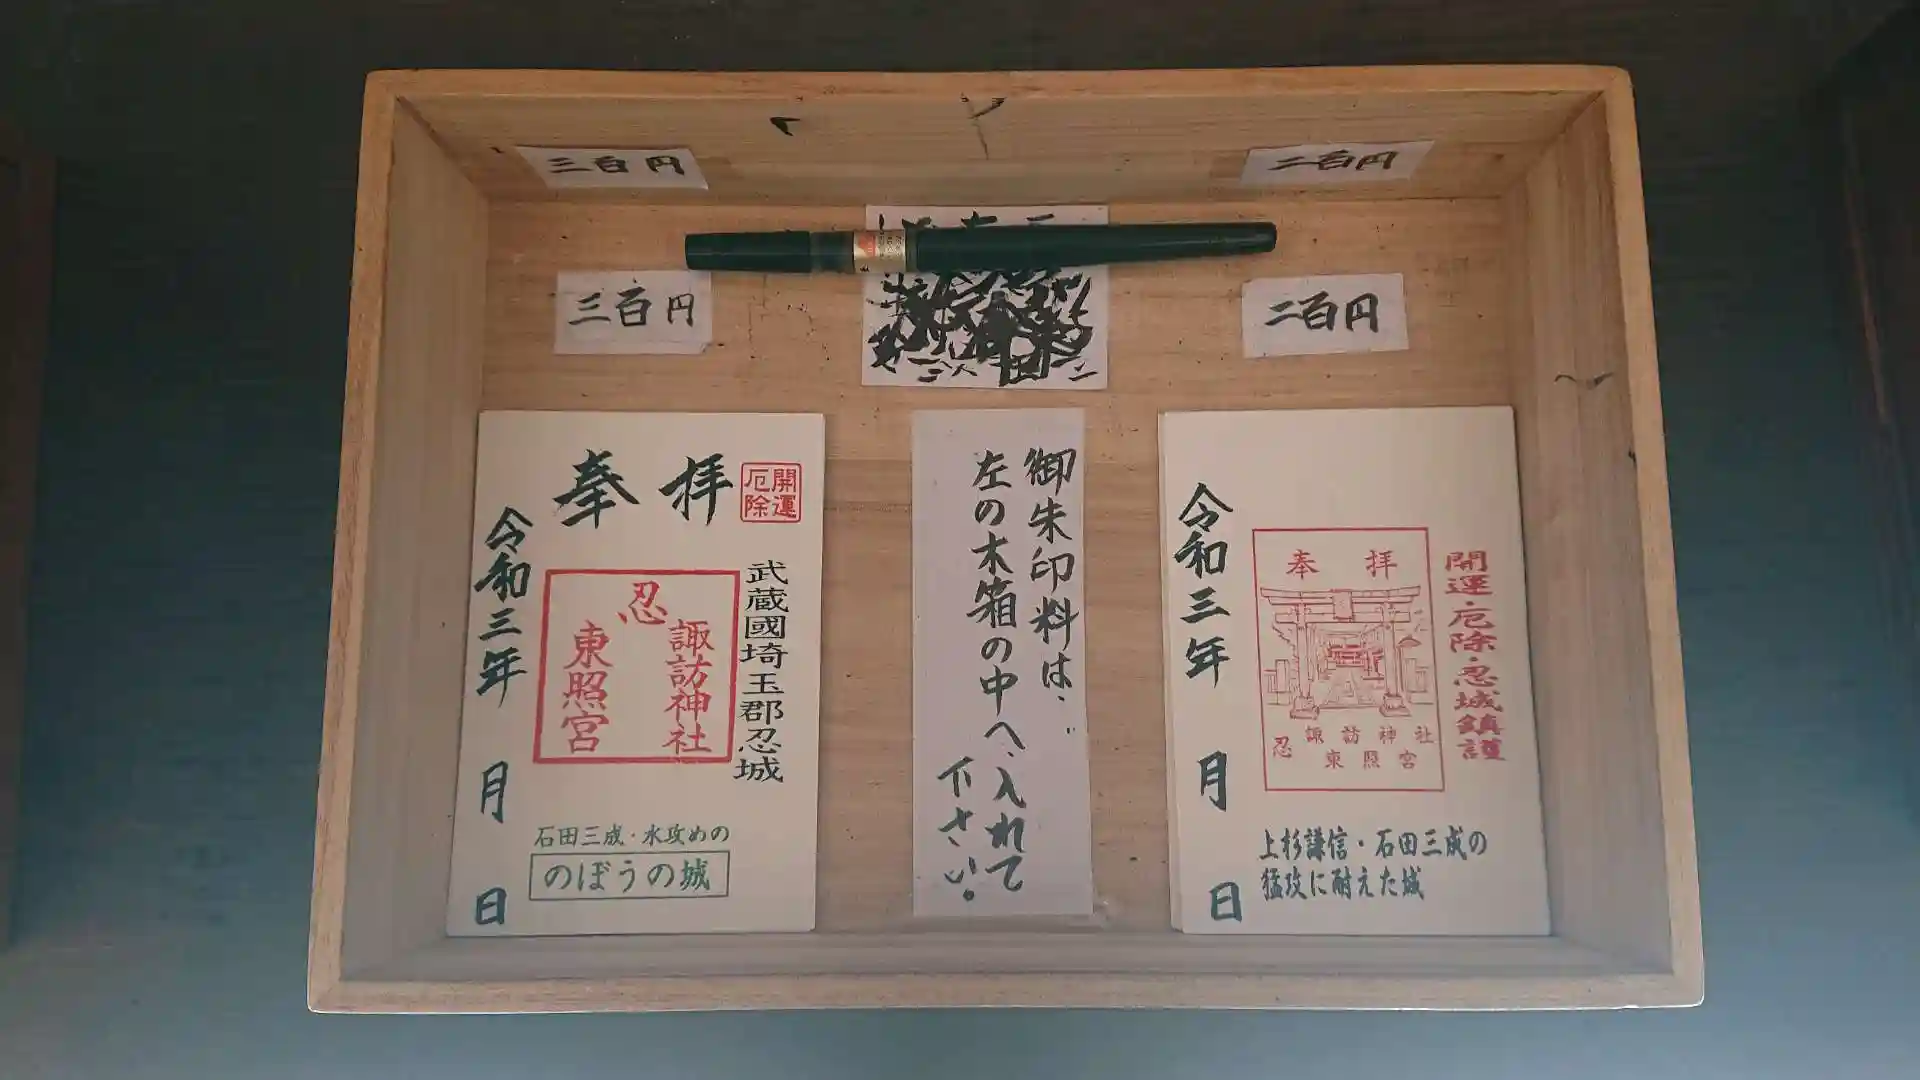 三百円
二百円
三百円
二百円
奉拝
開運
厄除
武蔵國埼玉郡忍城
忍
諏訪神社
東照宮
令和三年 月 日
石田三成・水攻めの
のぼうの城
御朱印料は、
左の木箱の中へ、入れて
下さい。
開運・厄除・忍城鎮護
奉拝
忍
諏訪神社
東照宮
令和三年 月 日
上杉謙信・石田三成の
猛攻に耐えた城